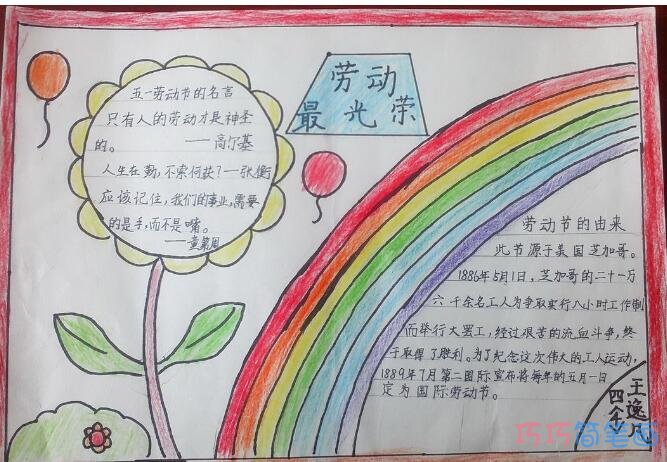 劳动
最光荣
五一劳动节的名言
只有人的劳动才是神圣
的。
——高尔基
人生在勤,不索何获?一张衡
应该记住,我们的事业,需要
的是手,而不是嘴。
——童第周
劳动节的由来
此节源于美国芝加哥。
1886年5月1日,芝加哥的二十一万
六千余名工人为争取实行八小时工作制
而举行大罢工,经过艰苦的流血斗争,终
于取得了胜利。为了纪念这次伟大的工人运动,
1889年7月第二国际宣布将每年的五月一日
定为国际劳动节。
王逸凡
巧巧简笔画